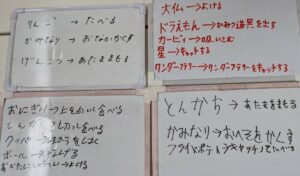 りんご → たべる
かみなり → おなかかくす
げんこつ → あたままもる
大仏 → よける
ドラえもん → ひみつ道具を出す
カービィ → 吸いこむ
星 → キャッチする
ワンダーフラワー → ワンダーフラワーをキャッチする
おにぎり → 上をむいて食べる
ボール → なげる
→ よける
とんかち → あたまをまもる
かみなり → おへそをかくす
フライドポテト → キャッチしてたべる